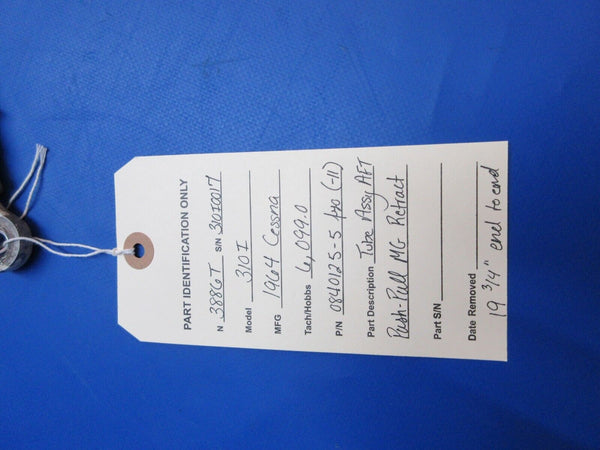 PART IDENTIFICATION ONLY
N 3886T S/N 310I0017
Model 310I
MFG 1964 Cessna
Tach/Hobbs 6,099.0
P/N 0840125-5 (-11)
Part Description Tube Assy AFT
Push-Pull MG Retract
Part S/N
Date Removed
19 3/4" end to end